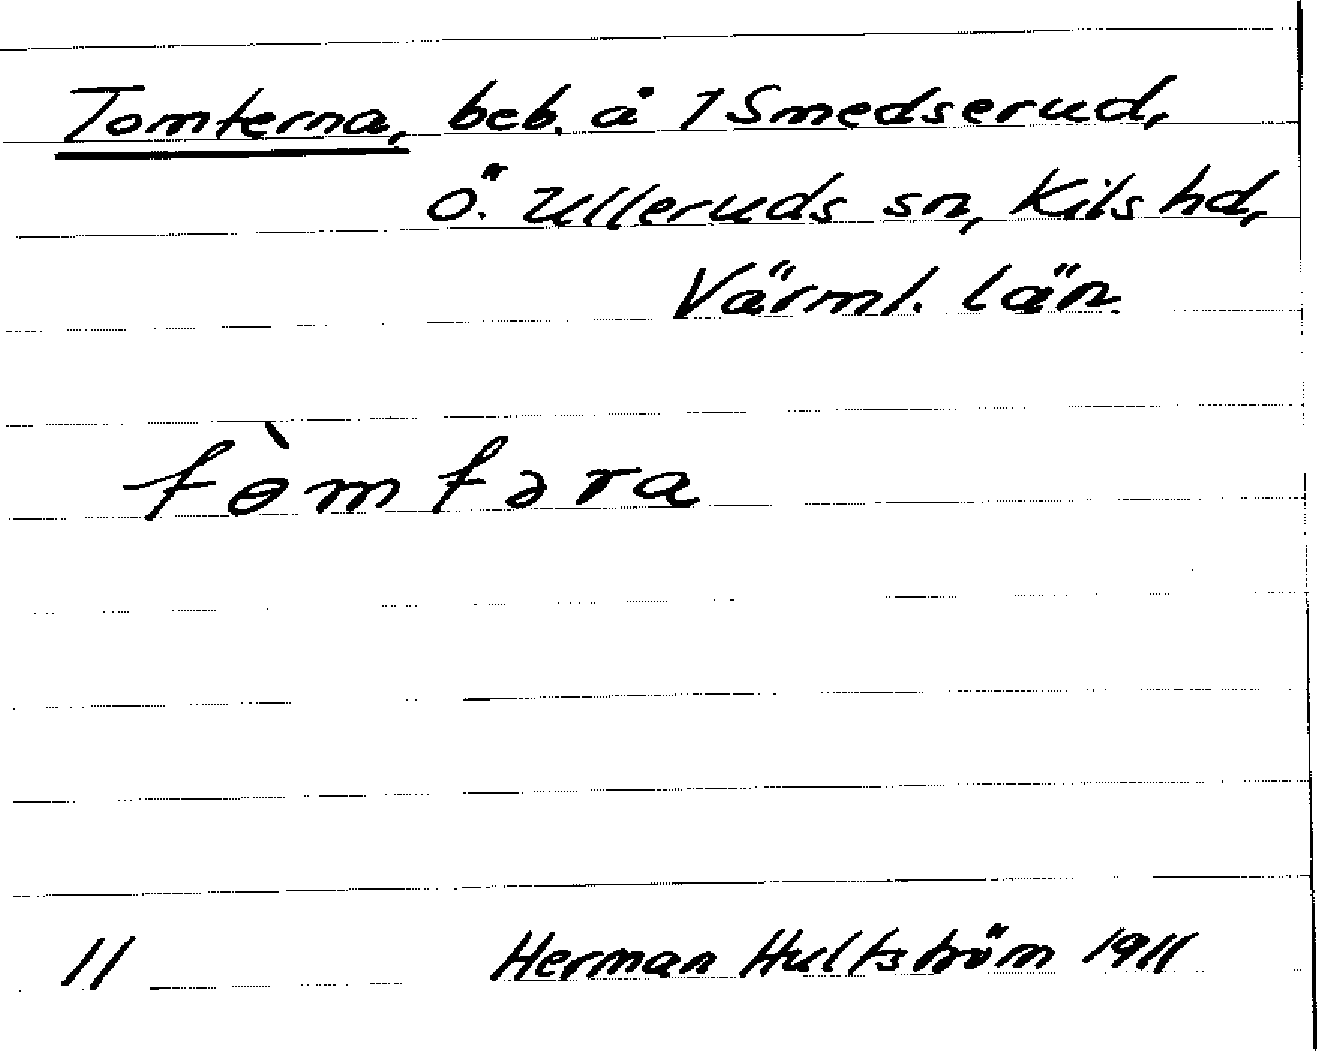 Tomterna, beb. å 1 Smedserud,
Ö. Ulleruds sn, Kils hd,
Värml. län
tɵ̀mtəra
11 Herman Hultström 1911